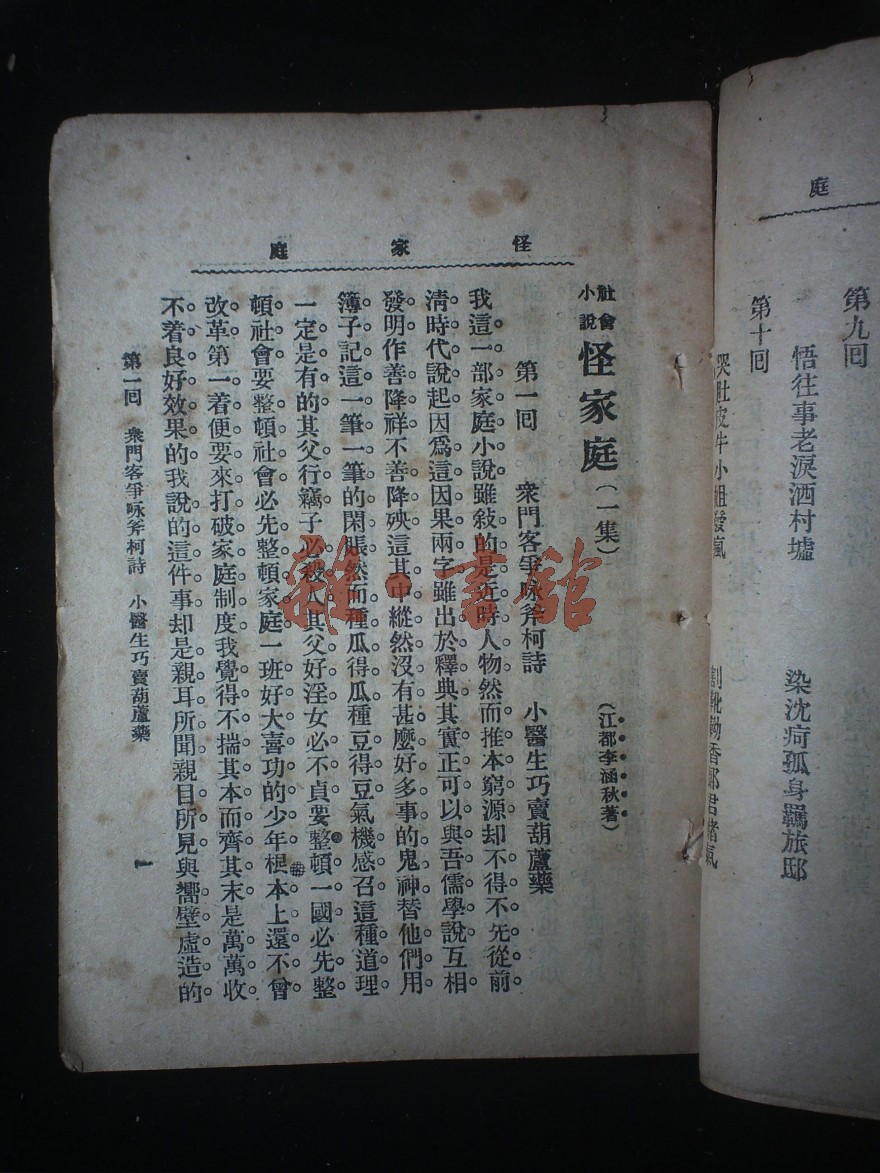 庭
第九回
悟往事老淚洒村墟　染沈疴孤身羈旅邸
第十回
小姐發瘋
怪家庭
社會小說 怪家庭（一集）（江都李涵秋著）
第一回　衆門客爭咏斧柯詩　小醫生巧賣葫蘆藥
我這一部家庭小說雖敍的是近時人物然而推本窮源却不得不先從前
淸時代說起因爲這因果兩字雖出於釋典其實正可以與吾儒學說互相
發明作善降祥不善降殃這其中縱然沒有甚麼好多事的鬼神替他們用
簿子記這一筆一筆的閑賬然而種瓜得瓜種豆得豆氣機感召這種道理
一定是有的其父行竊子必殺人其父好淫女必不貞要整頓一國必先整
頓社會要整頓社會必先整頓家庭一班好大喜功的少年根本上還不曾
改革第一着便要來打破家庭制度我覺得不揣其本而齊其末是萬萬收
不着良好效果的我說的這件事却是親耳所聞親目所見與嚮壁虛造的
第一回　衆門客爭咏斧柯詩　小醫生巧賣葫蘆藥
一
雜·書館